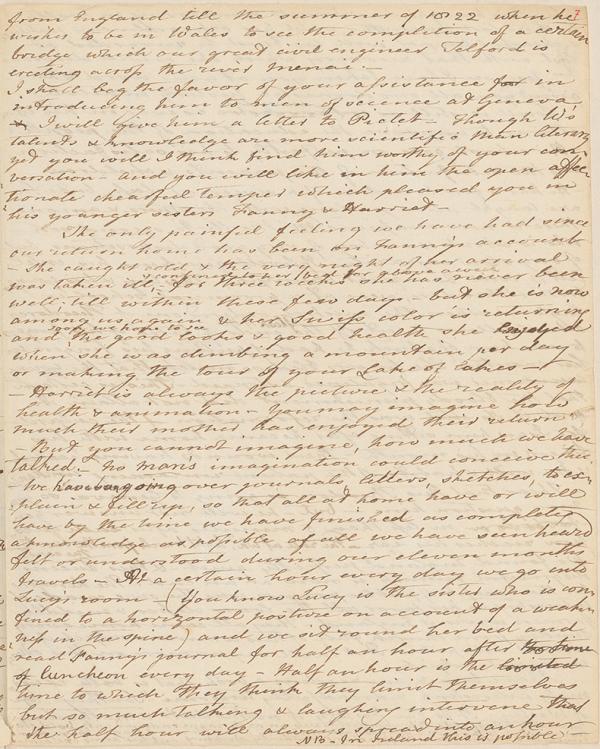 from England till the summer of 1822 when he 7
wishes to be in Wales to see the completion of a certain
bridge which our great civil engineer Telford is
erecting across the river Menai -
I shall beg the favor of your assistance for in
introducing him to men of science at Geneva
& I will give him a letter to Pictet - Though W's
talents & knowledge are more scientific than literary
yet you will I think find him worthy of your con
versation - and you will like in him the open affec-
tionate chearful temper which pleased you in
his younger sisters Fanny & Harriet -
The only painful feeling we have had since
our return home has been on Fanny's account
- She caught cold & the very night of her arrival
& confined to her bed for above a week
was taken ill, - for three weeks she has never been
well till within these few days - but she is now
among us again & her Swiss color is returning
soon we hope to see
and the good looks & good health she enjoyed
when she was climbing a mountain per day
or making the tour of your Lake of Lakes -
- Harriet is always the picture & the reality of
health & animation - You may imagine how
much their mother has enjoyed their return.
But you cannot imagine, how much we have
talked. - No man's imagination could conceive this
We have been going over journals, letters, sketches, to ex-
plain & fill up, so that all at home have or will
have by the time we have finished as complete
a knowledge as possible of all we have seen heard
felt or understood during our eleven months
travels - At a certain hour every day we go into
Lucy's room - (You know Lucy is the sister who is con
fined to a horizontal posture on account of a weak-
ness in the spine) and we sit round her bed and
read Fanny's journal for half an hour after the time
of luncheon every day - Half an hour is the limited
time to which they think they limit themselves
but so much talking & laughing intervene that
the half hour will always spread into an hour
NB - In Ireland this is possible -